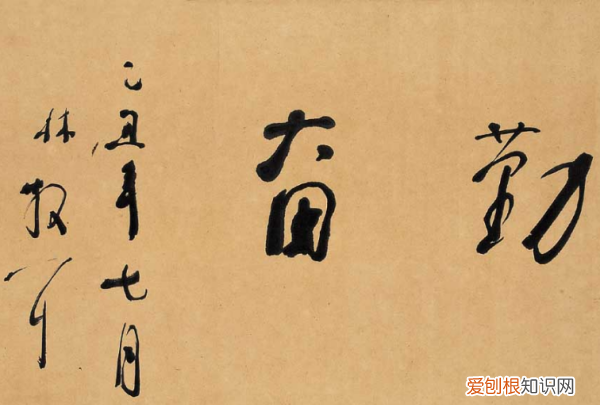 勤奋
乙丑年七月
林散耳
爱刨根知识网